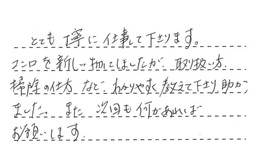 とても丁寧に仕事して下さります。
コンロを新しい物にしましたが、取扱い方、
掃除の仕方など、わかりやすく教えて下さり助かり
ました。また次回も何かあれば
お願いします。